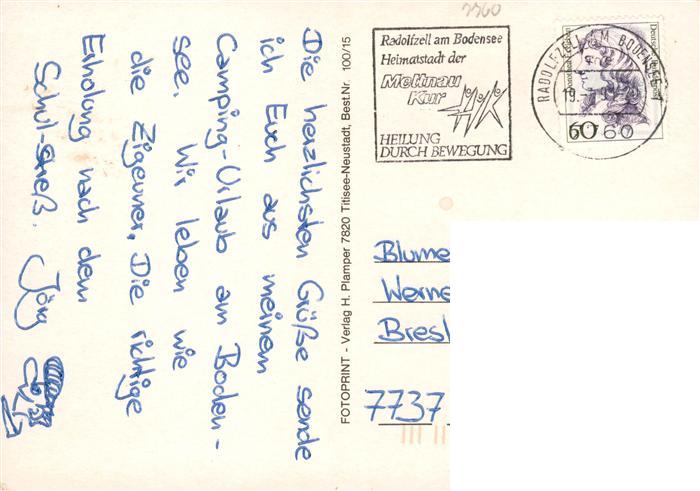 Die herzlichsten Grüße sende
ich Euch aus meinem
Camping-Urlaub am Boden-
see. Wir leben wie
die Zigeuner. Die richtige
Erholung nach dem
Schul-streß. Jörg
FOTOPRINT - Verlag H. Plamper 7820 Titisee-Neustadt, Best.Nr. 100/15
7760
Radolfzell am Bodensee
Heimatstadt der
Mettnau
Kur
HEILUNG
DURCH BEWEGUNG
RADOLFZELL AM BODENSEE 1
19.
60
60
Blume
Werne
Bresl
7737